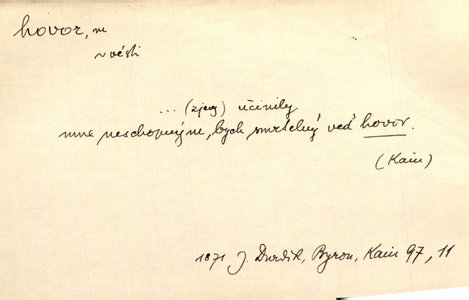 hovor, m
vésti
... (zjevy) učinily
mne neschopným, bych smrtelný ved' hovor.
(Kain)
1871 J. Durdík, Byron, Kain 97, 11